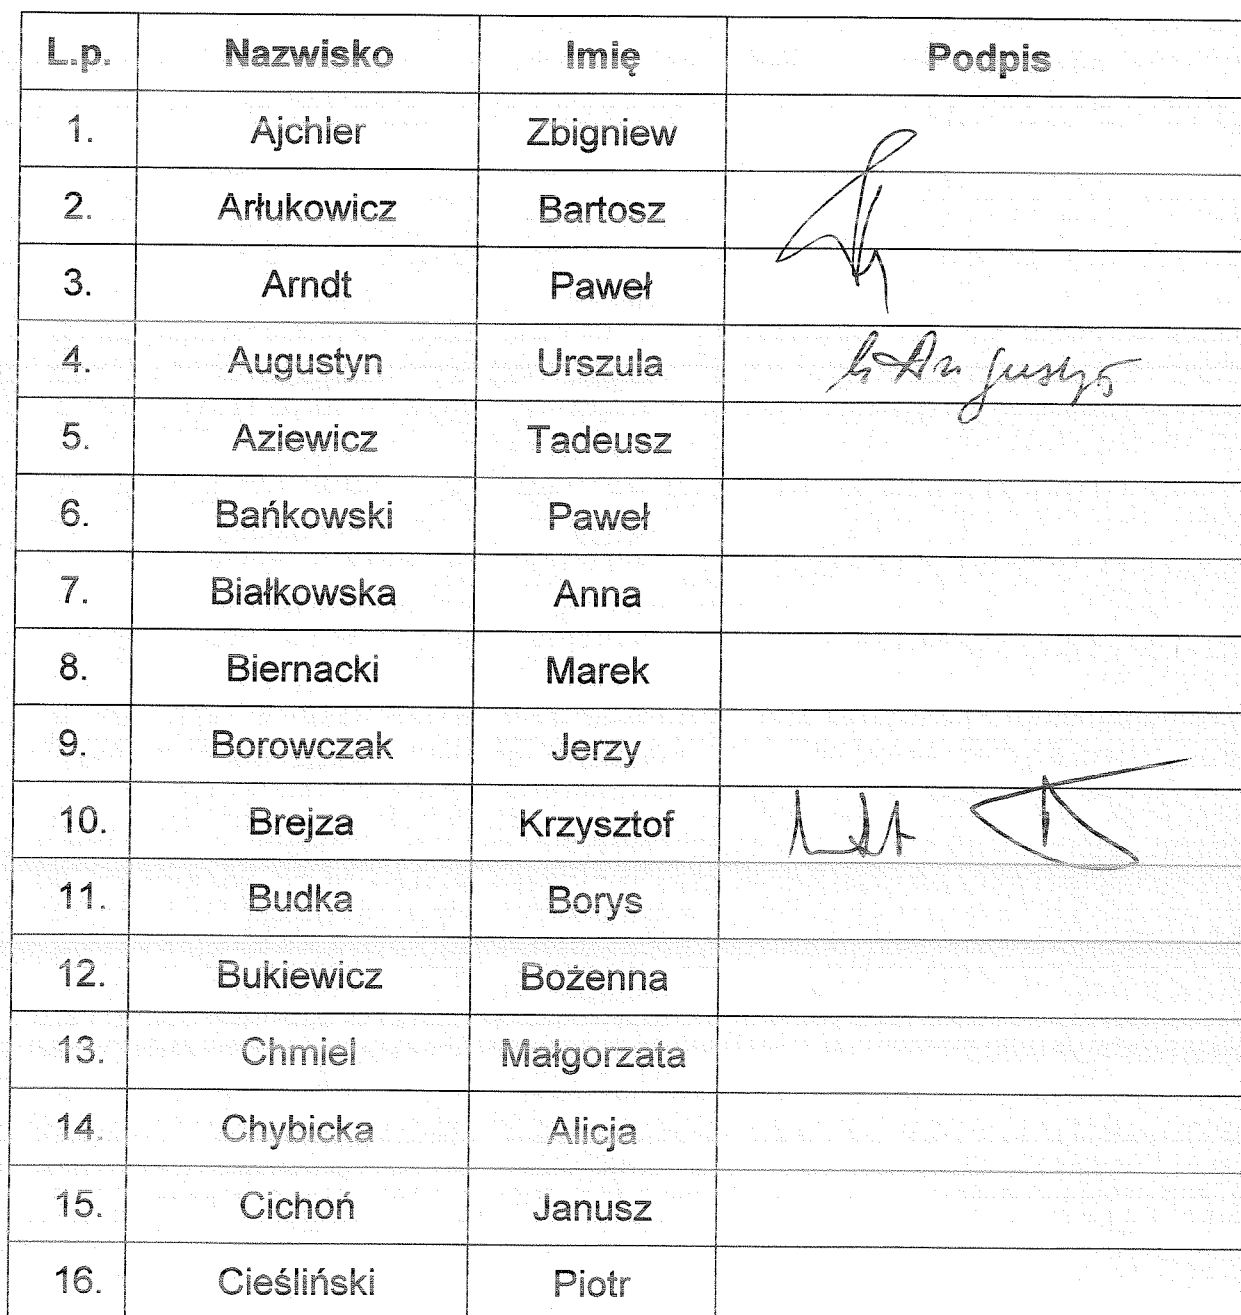 L.p. Nazwisko Imię Podpis
1. Ajchler Zbigniew
2. Arłukowicz Bartosz
3. Arndt Paweł
4. Augustyn Urszula Augustyn
5. Aziewicz Tadeusz
6. Bańkowski Paweł
7. Białkowska Anna
8. Biernacki Marek
9. Borowczak Jerzy
10. Brejza Krzysztof
11. Budka Borys
12. Bukiewicz Bożenna
13. Chmiel Małgorzata
14. Chybicka Alicja
15. Cichoń Janusz
16. Cieśliński Piotr